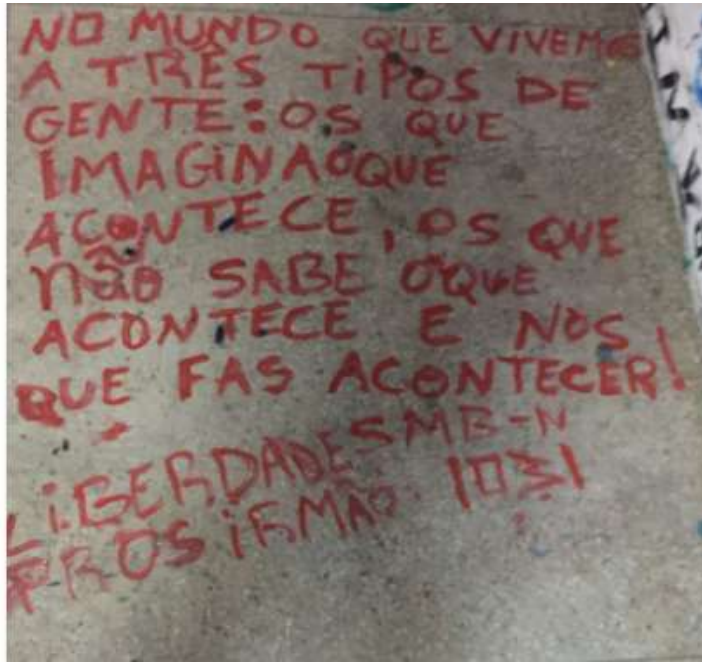 NO MUNDO QUE VIVEMOS
A TRÊS TiPOS DE
GENTE: OS QUE
IMAGINA OQUE
ACONTECE, OS QUE
não SABE OQUE
ACONTECE E NOS
QUE FAS ACONTECER!
LiBERDADE SMB-N
PROS iRMÃO